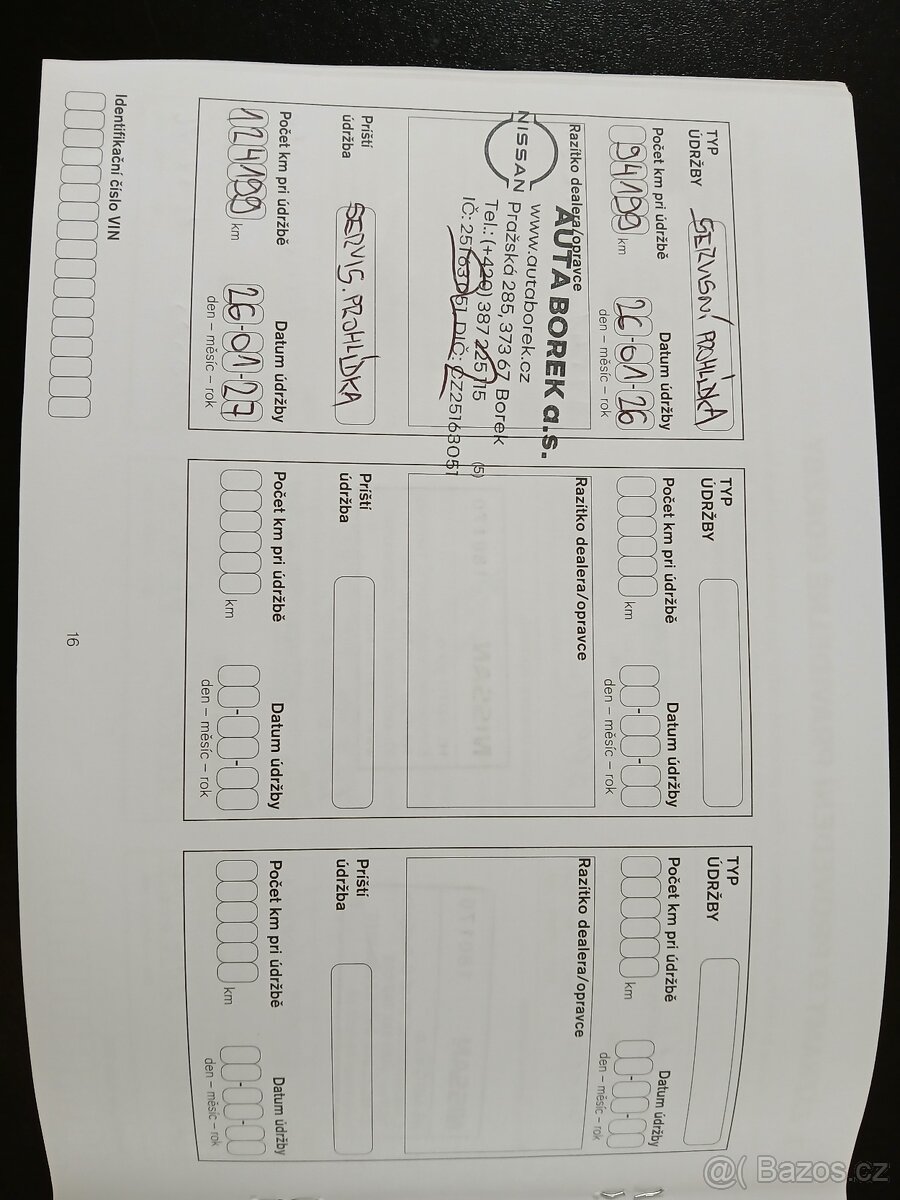 TYP
ÚDRŽBY
SERVISNÍ PROHLÍDKA
Počet km pri údržbě
Datum údržby
94199 km
26-01-26
den – měsíc – rok
Razítko dealera/opravce
NISSAN
AUTA BOREK a.s.
www.autaborek.cz
Pražská 285, 373 67 Borek
Tel.: (+420) 387 225 115
IČ: 25163051, DIČ: CZ25163051
(5)
Príští
údržba
SERVIS. PROHLÍDKA
Počet km pri údržbě
Datum údržby
124199 km
26-01-27
den – měsíc – rok
TYP
ÚDRŽBY
Počet km pri údržbě
Datum údržby
km
den – měsíc – rok
Razítko dealera/opravce
Príští
údržba
Počet km pri údržbě
Datum údržby
km
den – měsíc – rok
TYP
ÚDRŽBY
Počet km pri údržbě
Datum údržby
km
den – měsíc – rok
Razítko dealera/opravce
Príští
údržba
Počet km pri údržbě
Datum údržby
km
den – měsíc – rok
Identifikační číslo VIN
16
@( Bazos.cz